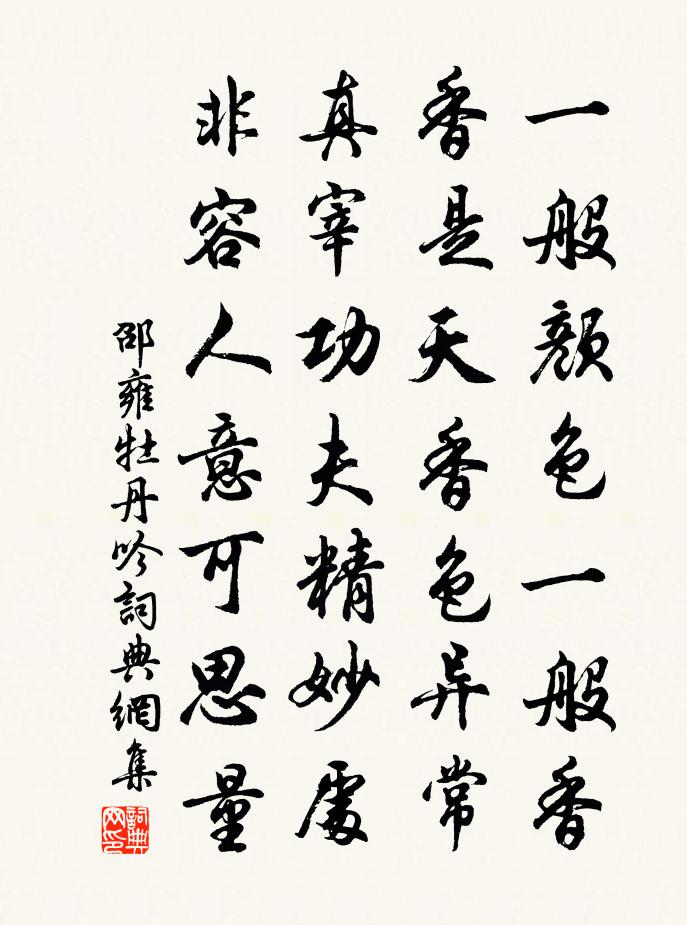 一般顔色一般香
香是天香色异常
真宰功夫精妙處
非容人意可思量
邵雍牡丹吟詞典網集
詞典网印